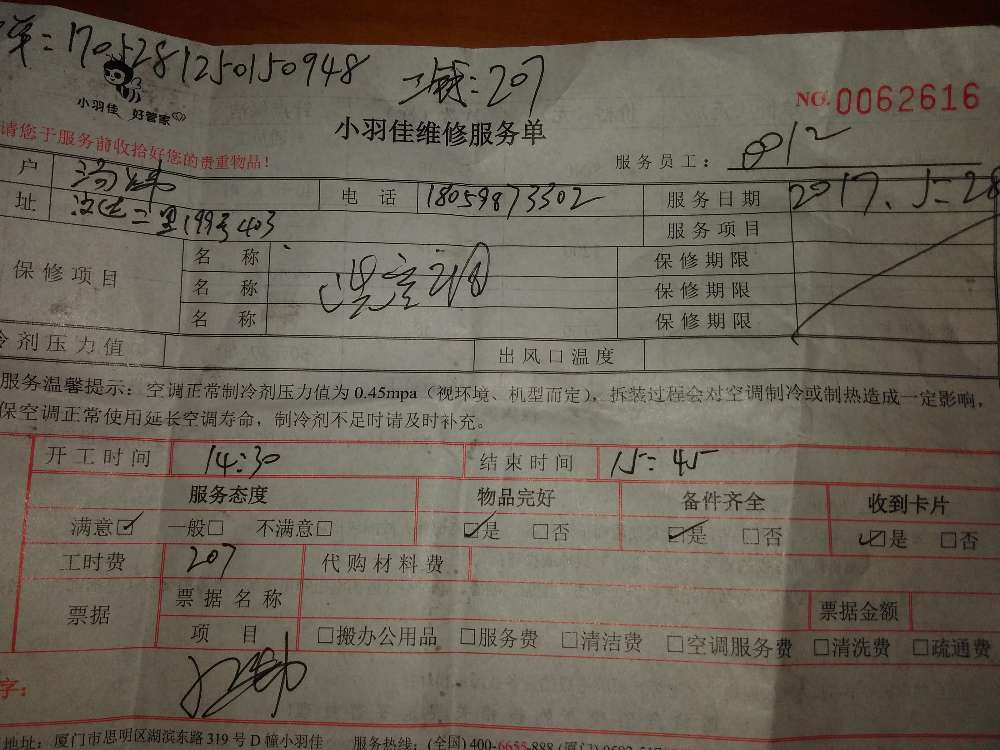 单:170528125015 0948 减:207
小羽佳 好管家
NO. 0062616
小羽佳维修服务单
请您于服务前收拾好您的贵重物品!
服务员工: 8012
户 电话 18059873302 服务日期 2017.5.28
址 二里199号403 服务项目
保修项目 名称 保修期限
名称 保修期限
名称 保修期限
剂压力值 出风口温度
服务温馨提示:空调正常制冷剂压力值为0.45mpa(视环境、机型而定),拆装过程会对空调制冷或制热造成一定影响,
保空调正常使用延长空调寿命,制冷剂不足时请及时补充。
开工时间 14:30 结束时间 15:45
服务态度 物品完好 备件齐全 收到卡片
满意☑ 一般□ 不满意□ ☑是 □否 ☑是 □否 ☑是 □否
工时费 207 代购材料费
票据 票据名称 票据金额
项目 □搬办公用品 □服务费 □清洁费 □空调服务费 □清洗费 □疏通费
字:
地址:厦门市思明区湖滨东路319号D幢小羽佳 服务热线:(全国)400-6655-888